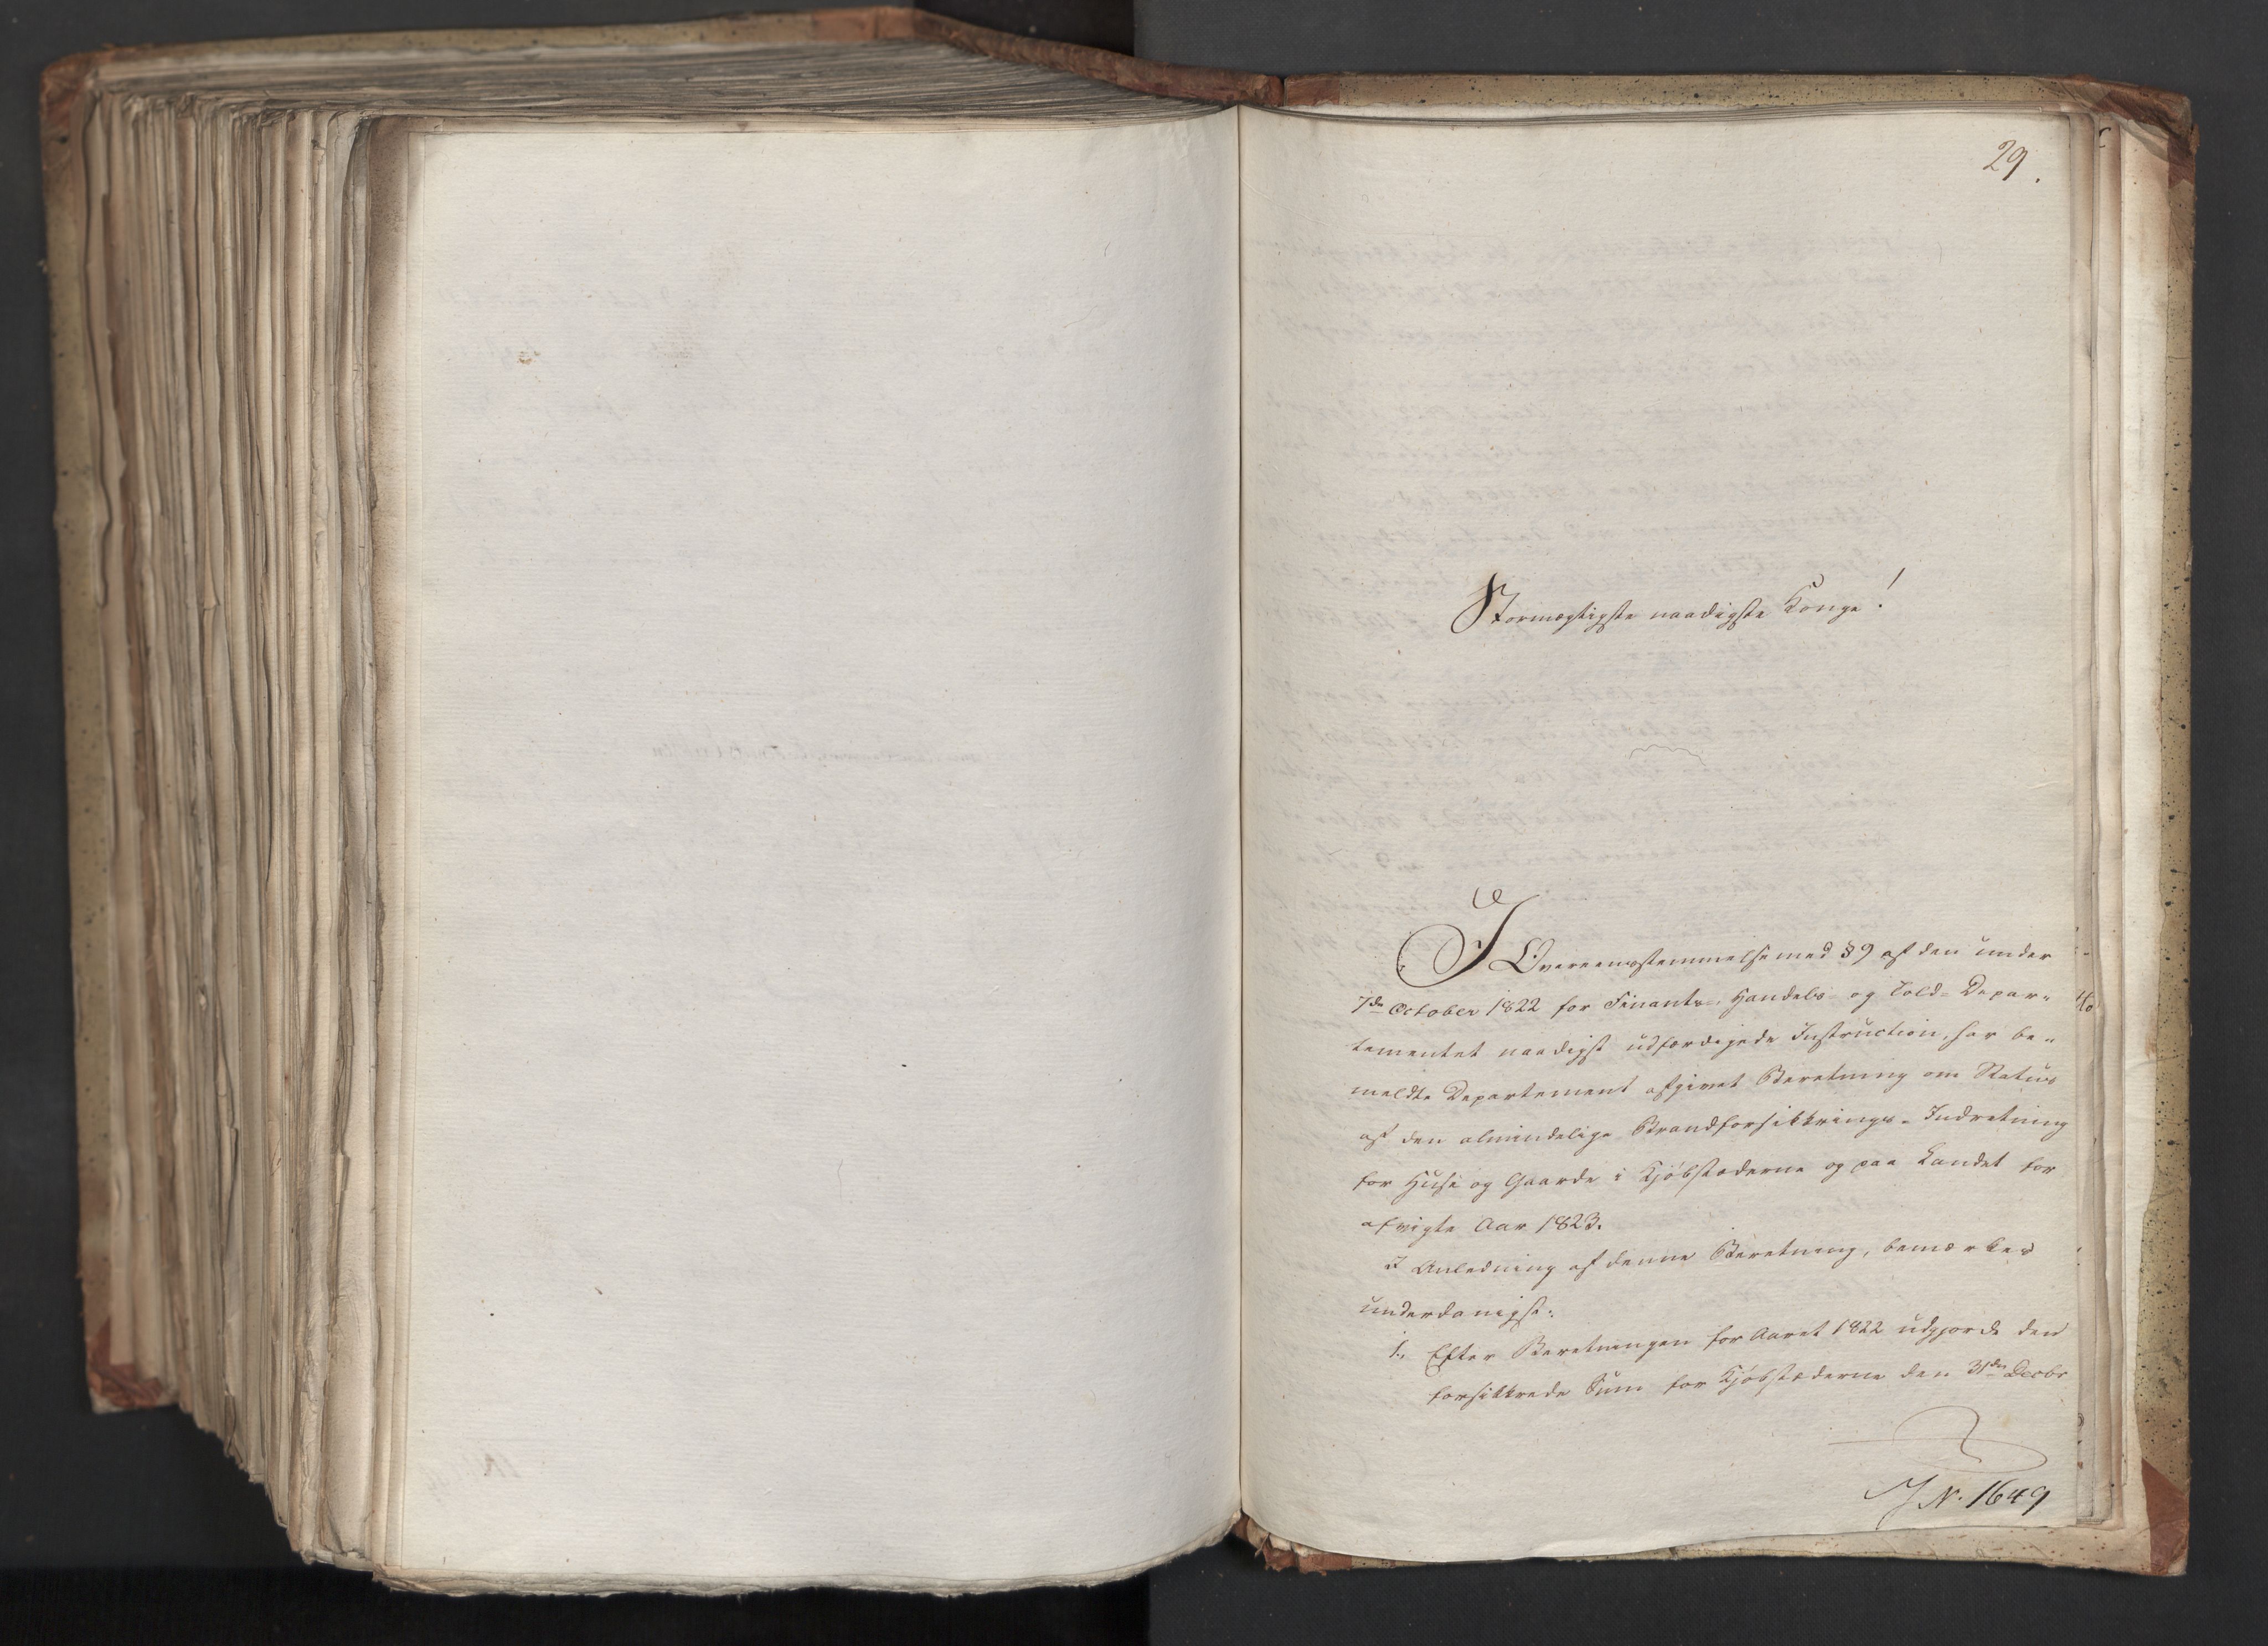 29.
Stormægtigste naadigste Konge!
I Overeensstemmelse med § 9 af den under
7de October 1822 for Finants-, Handels- og Told-Depar„
tementet naadigst udfærdigede Instruction, har be„
meldte Departement afgivet Beretning om Status
af den almindelige Brandforsikkrings-Indretning
for Huse og Gaarde i Kjöbstæderne og paa Landet for
afvigte Aar 1823.
I Anledning af denne Beretning, bemærkes
underdanigst:
1., Efter Beretningen for Aaret 1822 udgjorde den
forsikkrede Sum for Kjöbstæderne den 31de Decbr
J N. 1649